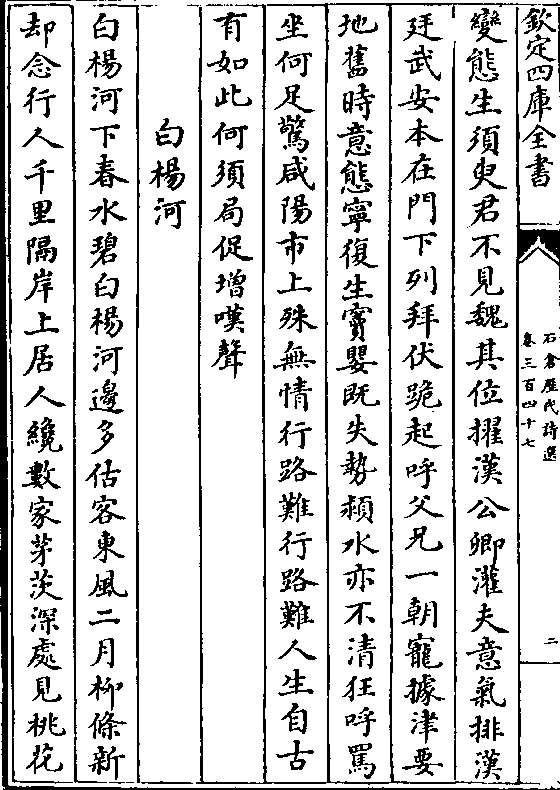 欽定四庫全書
石倉歷代詩選
卷三百四十七
二
變態生須臾君不見魏其位擢漢公卿灌夫意氣排漢
廷武安本在門下列拜伏跪起呼父兄一朝寵據津要
地舊時意態寧復生竇嬰既失勢潁水亦不清狂呼罵
坐何足驚咸陽市上殊無情行路難行路難人生自古
有如此何須局促增嘆聲
白楊河
白楊河下春水碧白楊河邊多估客東風二月柳條新
却念行人千里隔岸上居人纔數家茅茨深處見桃花